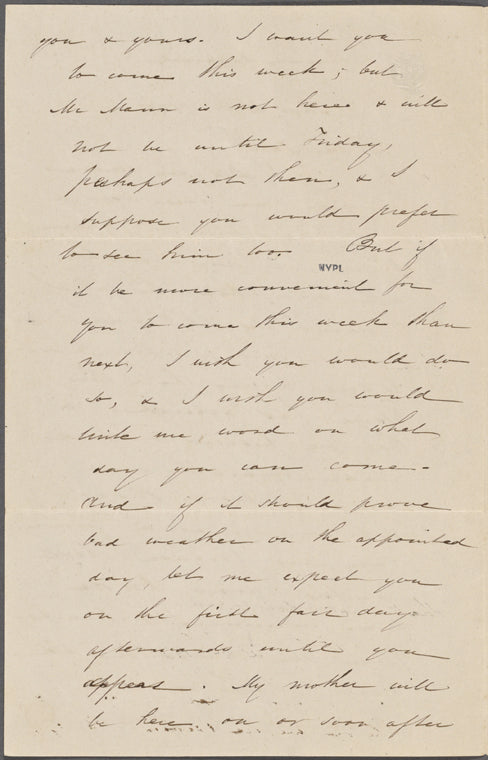 you & yours. I want you
to come this week; but
Mr Mann is not here & will
not be until Friday,
perhaps not then, & I
suppose you would prefer
to see him too. But if
NYPL
it be more convenient for
you to come this week than
next, I wish you would do
so, & I wish you would
write me word on what
day you can come -
And if it should prove
bad weather on the appointed
day, let me expect you
on the first fair day
afterwards until you
appear. My mother will
be here on or soon after